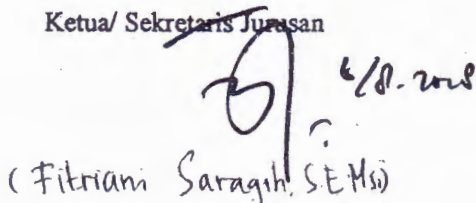 Ketua/ Sekretaris Jurusan
( Fitriani Saragih, S.E M.Si)